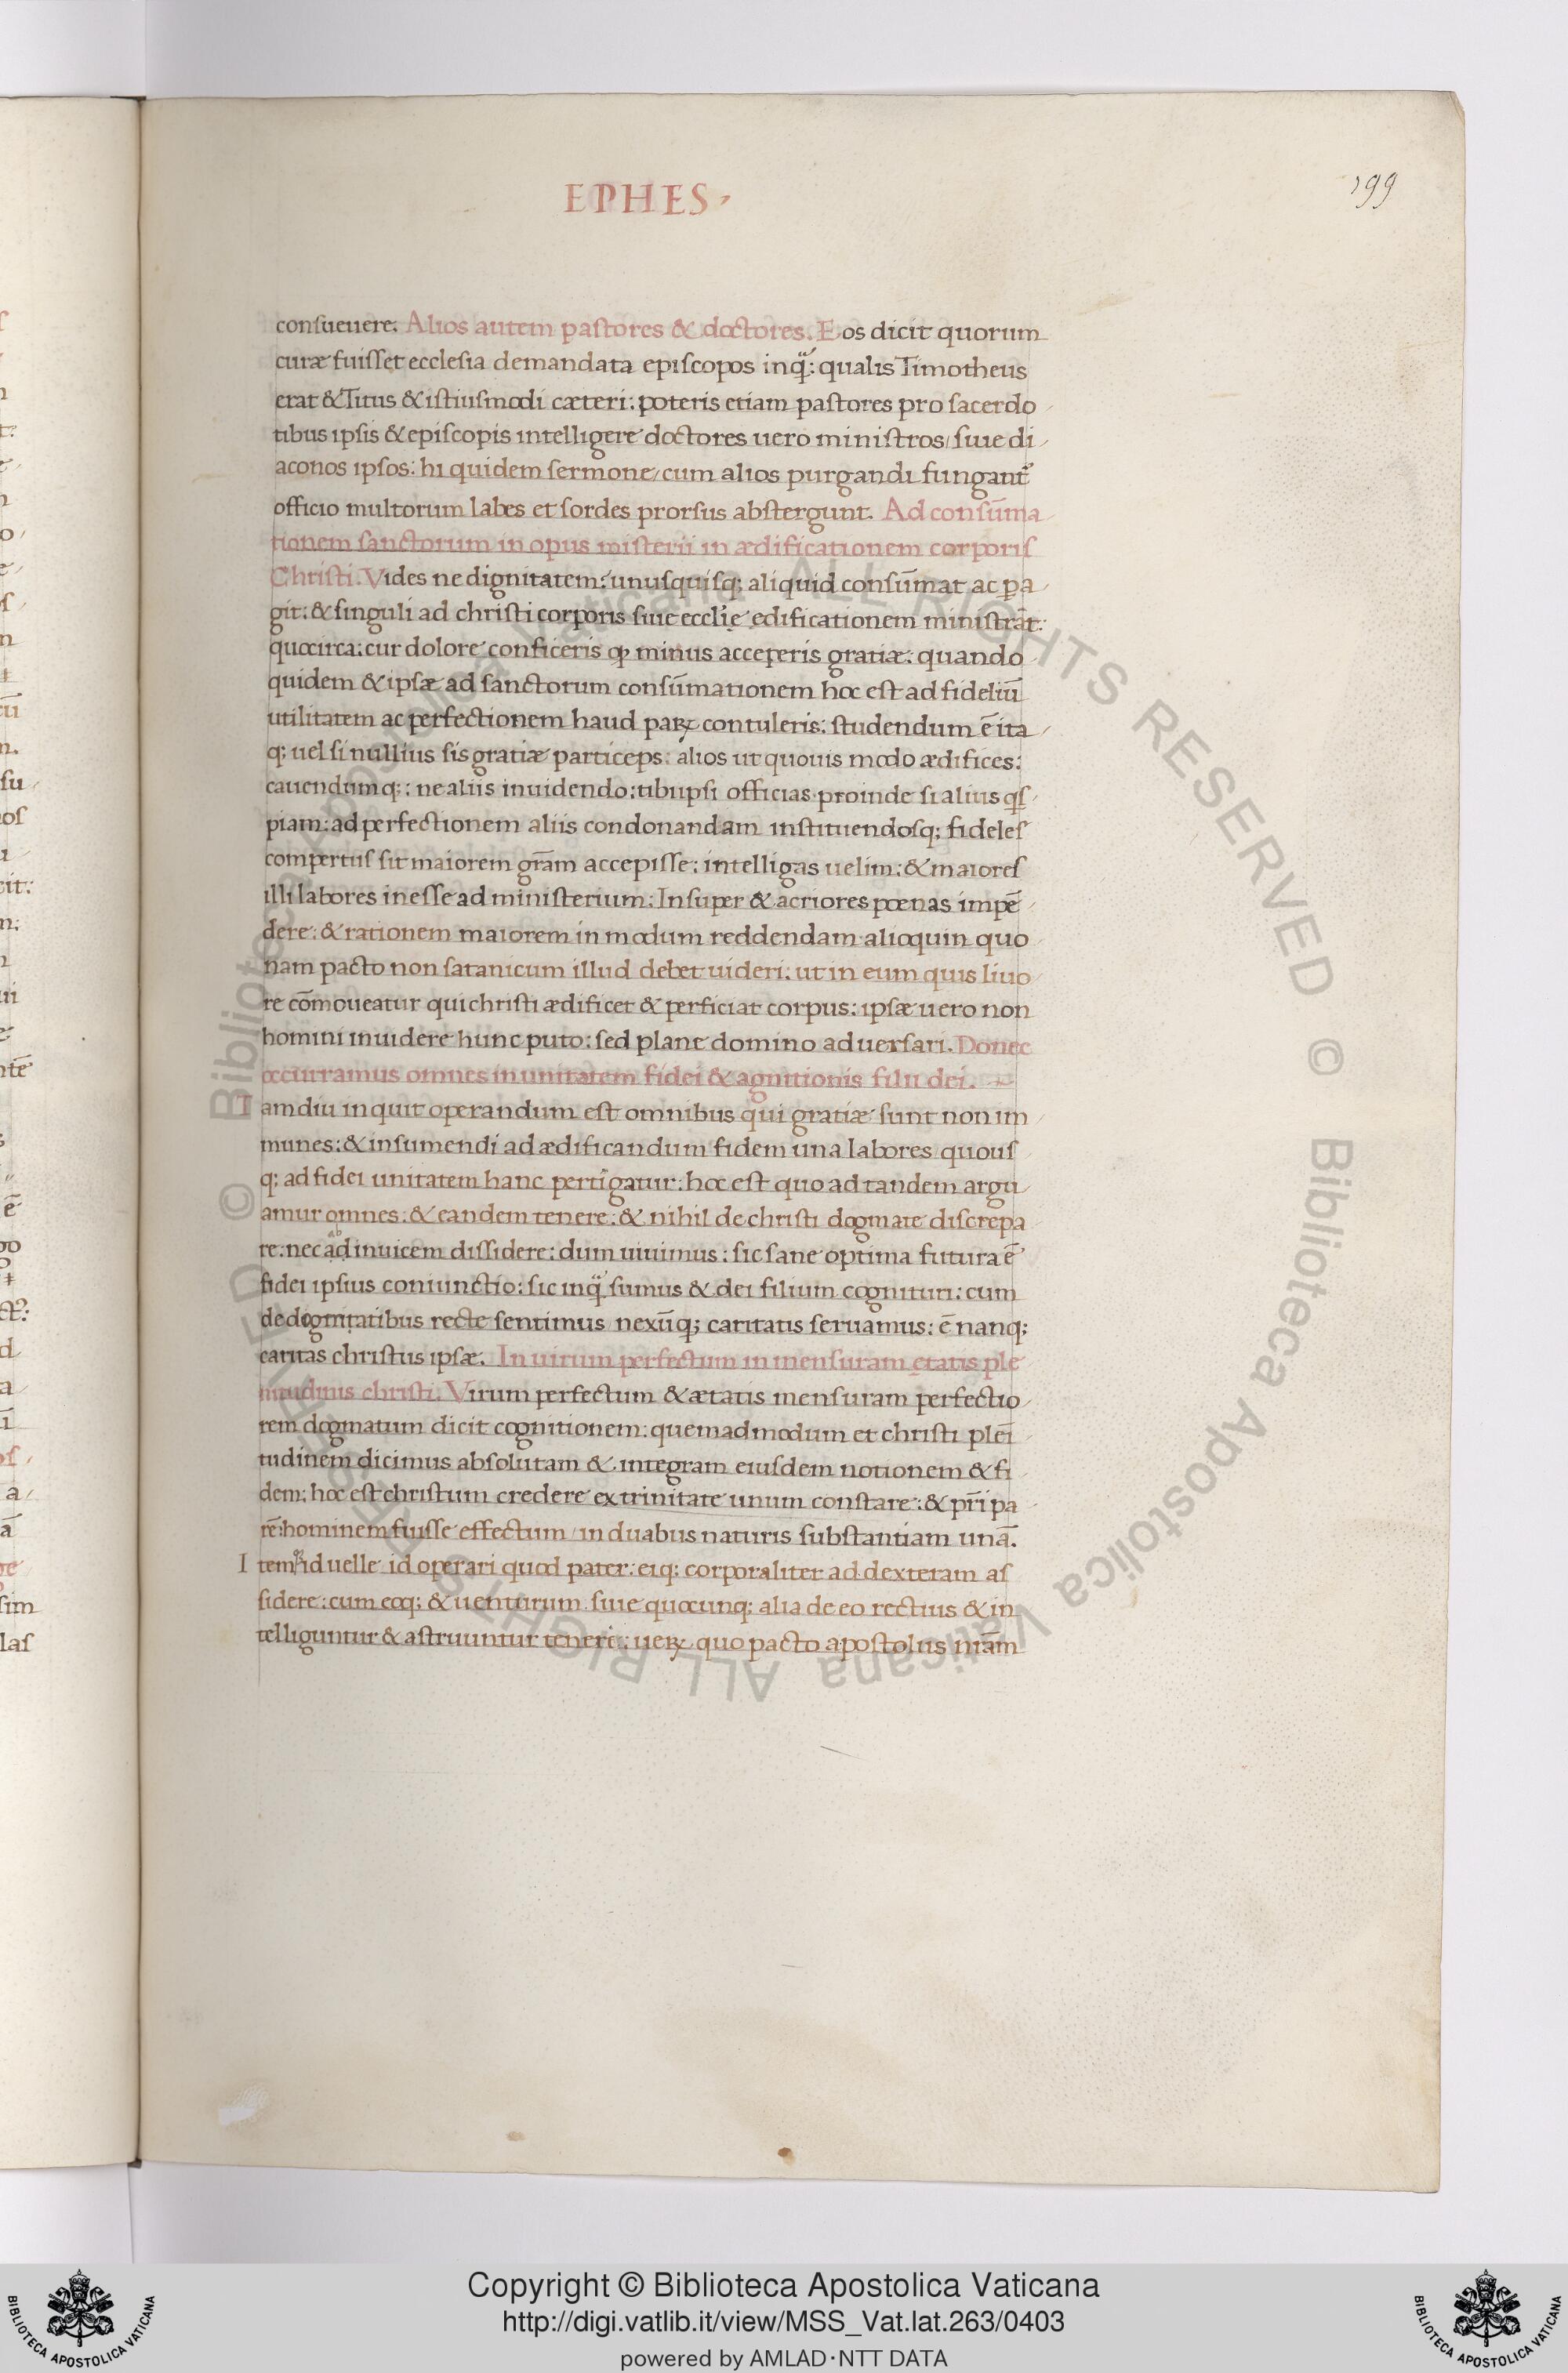 EPHES.
199
consueuere. Alios autem pastores & doctores. Eos dicit quorum
curæ fuisset ecclesia demandata episcopos inq̃: qualis Timotheus
erat & Titus & istiusmodi cæteri: poteris etiam pastores pro sacerdo
tibus ipsis & episcopis intelligere doctores uero ministros/ siue di
aconos ipsos: hi quidem sermone/ cum alios purgandi fungant̃
officio multorum labes et sordes prorsus abstergunt. Ad consũma
tionem sanctorum in opus misterii in ædificationem corporis
Christi. Vides ne dignitatem: unusquisq; aliquid consũmat ac ꝑa
git: & singuli ad christi corporis siue eccl̃ie edificationem ministrãt:
quocirca: cur dolore conficeris ꝙ minus acceperis gratiæ: quando
quidem & ipsæ ad sanctorum consũmationem hoc est ad fideliũ
utilitatem ac perfectionem haud paꝝ contuleris: studendum ẽ ita
q; uel si nullius sis gratiæ particeps: alios ut quouis modo ædifices:
cauendumq;: ne aliis inuidendo: tibiipsi officias. proinde si alius q̃s
piam: ad perfectionem aliis condonandam instituendosq; fideles
compertus sit maiorem grãm accepisse: intelligas uelim: & maiores
illi labores inesse ad ministerium: Insuper & acriores pœnas impẽ
dere: & rationem maiorem in modum reddendam. alioquin quo
nam pacto non satanicum illud debet uideri: ut in eum quis liuo
re cõmoueatur qui christi ædificet & perficiat corpus: ipsæ uero non
homini inuidere hunc puto: sed plane domino aduersari. Donec
occurramus omnes in unitatem fidei & agnitionis filii dei.
Iamdiu inquit operandum est omnibus qui gratiæ sunt non im
munes: & insumendi ad ædificandum fidem una labores/ quous
q; ad fidei unitatem hanc pertigatur: hoc est quo ad tandem argu
amur omnes: & eandem tenere: & nihil de christi dogmate discrepa
re: nec ad inuicem dissidere: dum uiuimus: sic sane optima futura ẽ
ab
fidei ipsius coniunctio: sic inq̃ sumus & dei filium cognituri: cum
de dogmatibus recte sentimus nexũq; caritatis seruamus: ẽ nanq;
caritas christus ipsæ. In uirum perfectum in mensuram ętatis ple
nitudinis christi. Virum perfectum & ætatis mensuram perfectio
rem dogmatum dicit cognitionem: quemadmodum et christi pleĩ
tudinem dicimus absolutam & integram eiusdem notionem & fi
dem: hoc est christum credere ex trinitate unum constare: & pr̃i pa
rẽ: hominem fuisse effectum/ in duabus naturis substantiam unã.
Item id uelle id operari quod pater: eiq; corporaliter ad dexteram as
sidere: cum eoq; & uenturum. siue quæcunq; alia de eo rectius & in
telliguntur & astruuntur teneri: ueꝝ quo pacto apostolus
© Biblioteca Apostolica Vaticana ALL RIGHTS RESERVED © Biblioteca Apostolica Vaticana ALL RIGHTS RESERVED
Copyright © Biblioteca Apostolica Vaticana
http://digi.vatlib.it/view/MSS_Vat.lat.263/0403
powered by AMLAD·NTT DATA
BIBLIOTECA APOSTOLICA VATICANA
BIBLIOTECA APOSTOLICA VATICANA